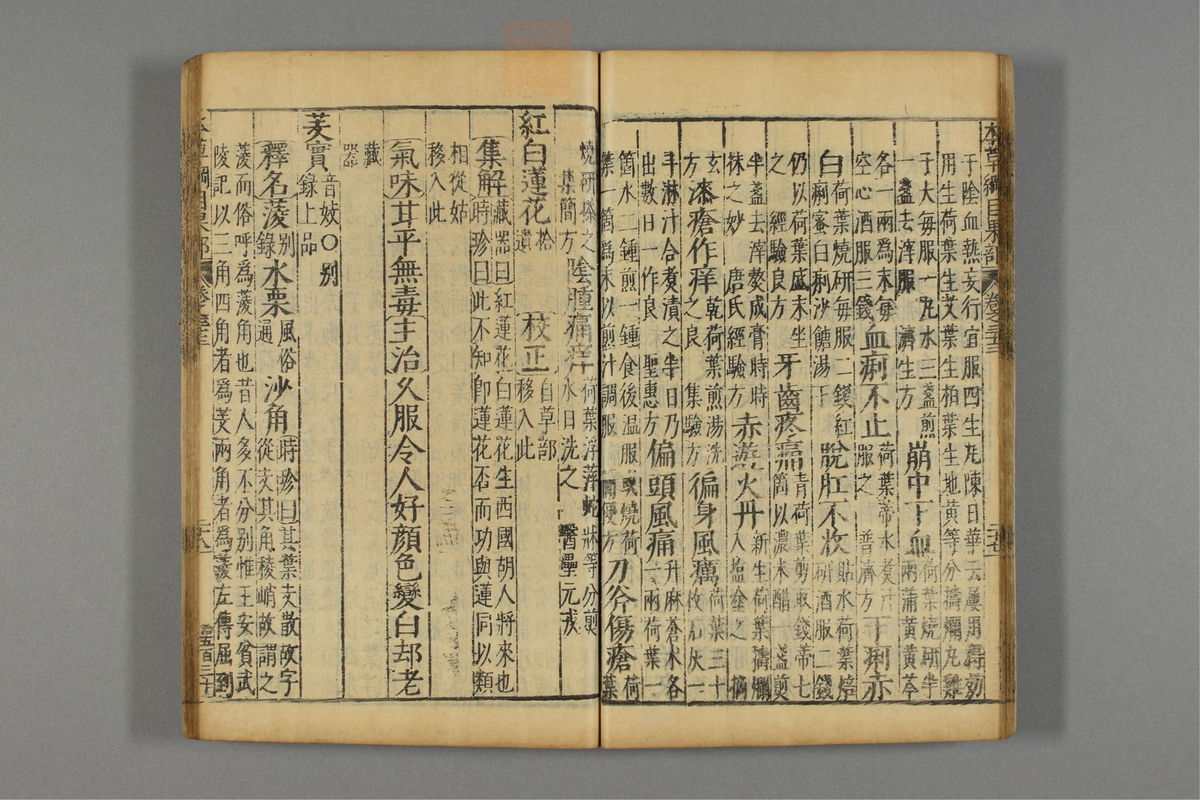 本草綱目果部 卷之三十三
于陰血熱妄行宜服四生丸陳日華云屢用得效
用生荷葉生艾葉生柏葉生地黃等分擣爛丸雞
子大每服一丸水三盞煎一盞去滓服 濟生方 崩中下血 荷葉燒研半兩蒲黃黃芩
各一兩為末每空心酒服三錢 血痢不止 荷葉蒂水煮汁服之 普濟方 下痢赤
白 荷葉燒研每服二錢紅痢蜜白痢沙餹湯下 脫肛不收 貼水荷葉焙研酒服二錢
仍以荷葉盛末坐之 經驗良方 牙齒疼痛 青荷葉剪取錢蒂七箇以濃米醋一盞煎
半盞去滓熬成膏時時抹之妙 唐氏經驗方 赤遊火丹 新生荷葉擣爛入鹽塗之 摘
玄方 漆瘡作痒 乾荷葉煎湯洗之良 集驗方 徧身風癘 荷葉三十枚石灰一
斗淋汁合煑漬之半日乃出數日一作良 聖惠方 偏頭風痛 升麻蒼术各一兩荷葉一
箇水二鍾煎一鍾食後温服或燒荷葉一箇為末以煎汁調服 簡便方 刀斧傷瘡 荷葉
燒研搽之 集簡方 陰腫痛痒 荷葉浮萍蛇牀等分煎水日洗之 醫壘元戎
紅白蓮花 拾遺 校正 自草部移入此
集解 藏器曰紅蓮花白蓮花生西國胡人將來也
時珍曰此不知卽蓮花否而功與蓮同以類
相從姑移入此
氣味 甘平無毒 主治 久服令人好顔色變白却老
藏器
芰實 音妓〇別錄上品
釋名 菱 別錄 水栗 風俗通 沙角 時珍曰其葉支散故字從支其角棱峭故謂之
菱而俗呼為菱角也昔人多不分別惟王安貧武
陵記以三角四角者為芰兩角者為菱左傳屈到
本草綱目果部 卷之三十三